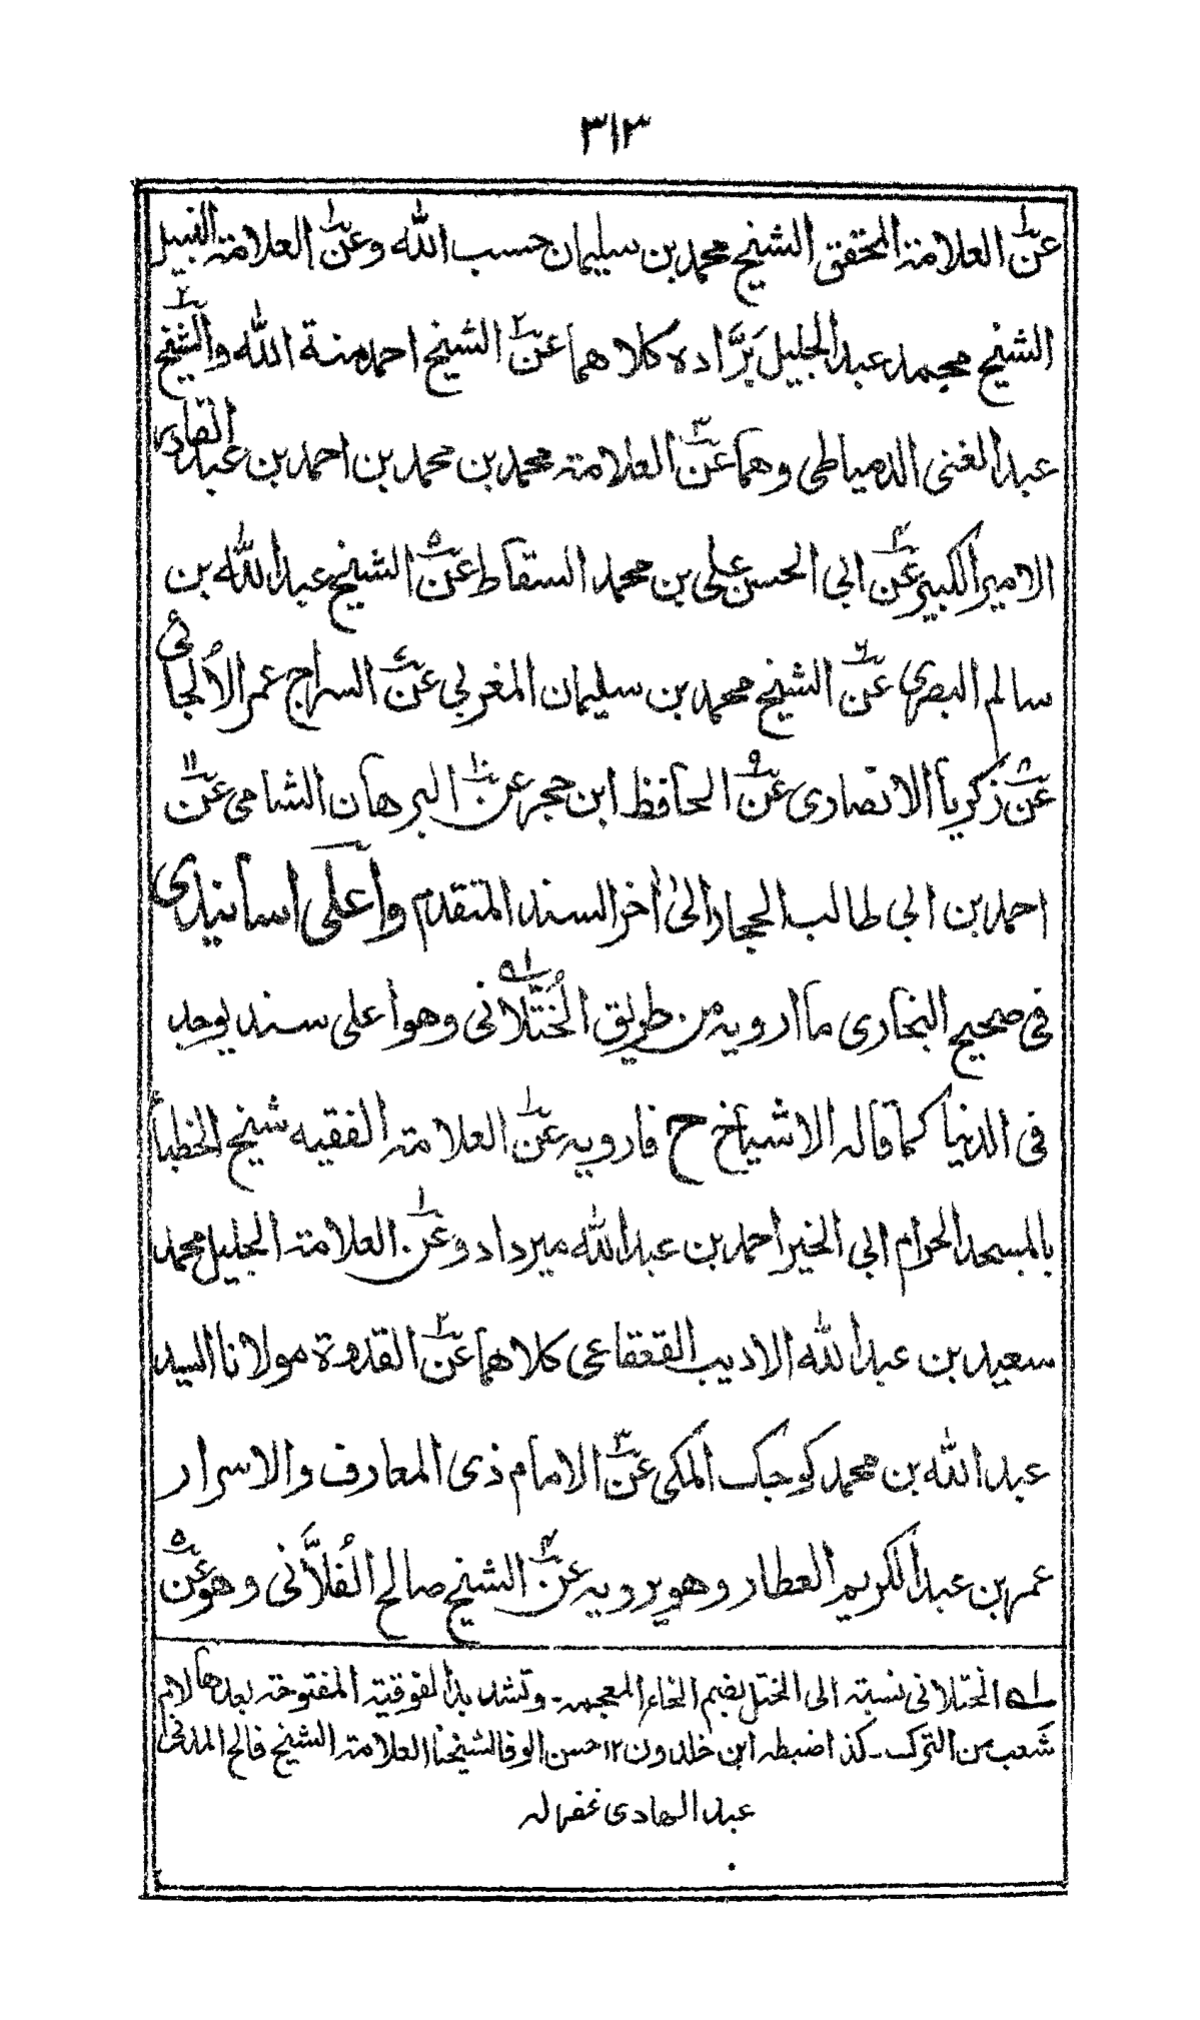 ٣١٣
عن١ العلامة المحقق الشيخ محمد بن سليمان حسب الله وعن١ العلامة النبيل
الشيخ محمد عبد الجليل بَرَّاده كلاهما عن٢ الشيخ احمد منة الله والشيخ٢
عبد الغنى الدمياطى وهما عن٣ العلامة محمد بن محمد بن احمد بن عبد القادر
الامير الكبير عن٤ ابى الحسن على بن محمد السقاط عن٥ الشيخ عبد الله بن
سالم البصرى عن٦ الشيخ محمد بن سليمان المغربى عن٧ السراج عمر الاُلجائى
عن٨ زكريا الانصارى عن٩ الحافظ ابن حجر عن١٠ البرهان الشامى عن١١
احمد بن ابى طالب الحجار الىٰ اٰخر السند المتقدم واَعلَى اسانيدى
فى صحيح البخارى ما ارويه من طريق الخُتَّلانى١ه وهو اعلى سند يوجد
فى الدنيا كما قاله الاشياخ ح فارويه عن١ العلامة الفقيه شيخ الخطباء
بالمسجد الحرام ابى الخير احمد بن عبد الله ميرداد وعن١ العلامة الجليل محمد
سعيد بن عبد الله الاديب القعقاعى كلاهما عن٢ القدوة مولانا السيد
عبد الله بن محمد كوجك المكى عن٣ الامام ذى المعارف والاسرار
عمر بن عبد الكريم العطار وهو يرويه عن٤ الشيخ صالح الفُلاَّنى وهو عن٥
١ه الختلانى نسبته الى الختل بضم الخاء المعجمه وتشديد الفوقيه المفتوحه بعدها لام
شَعب من الترك - كذا ضبطه ابن خلدون ١٢ حسن الوفا لشيخنا العلامة الشيخ فالح المدنى
عبد الهادى غفر له